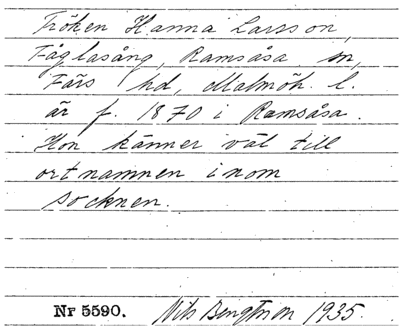 Fröken Hanna Larsson,
Fåglasång, Ramsåsa sn,
Färs hd, Malmöh. l.
är f. 1870 i Ramsåsa.
Hon känner väl till
ortnamnen inom
socknen.
Nr 5590. Nils Bengtsson 1935.